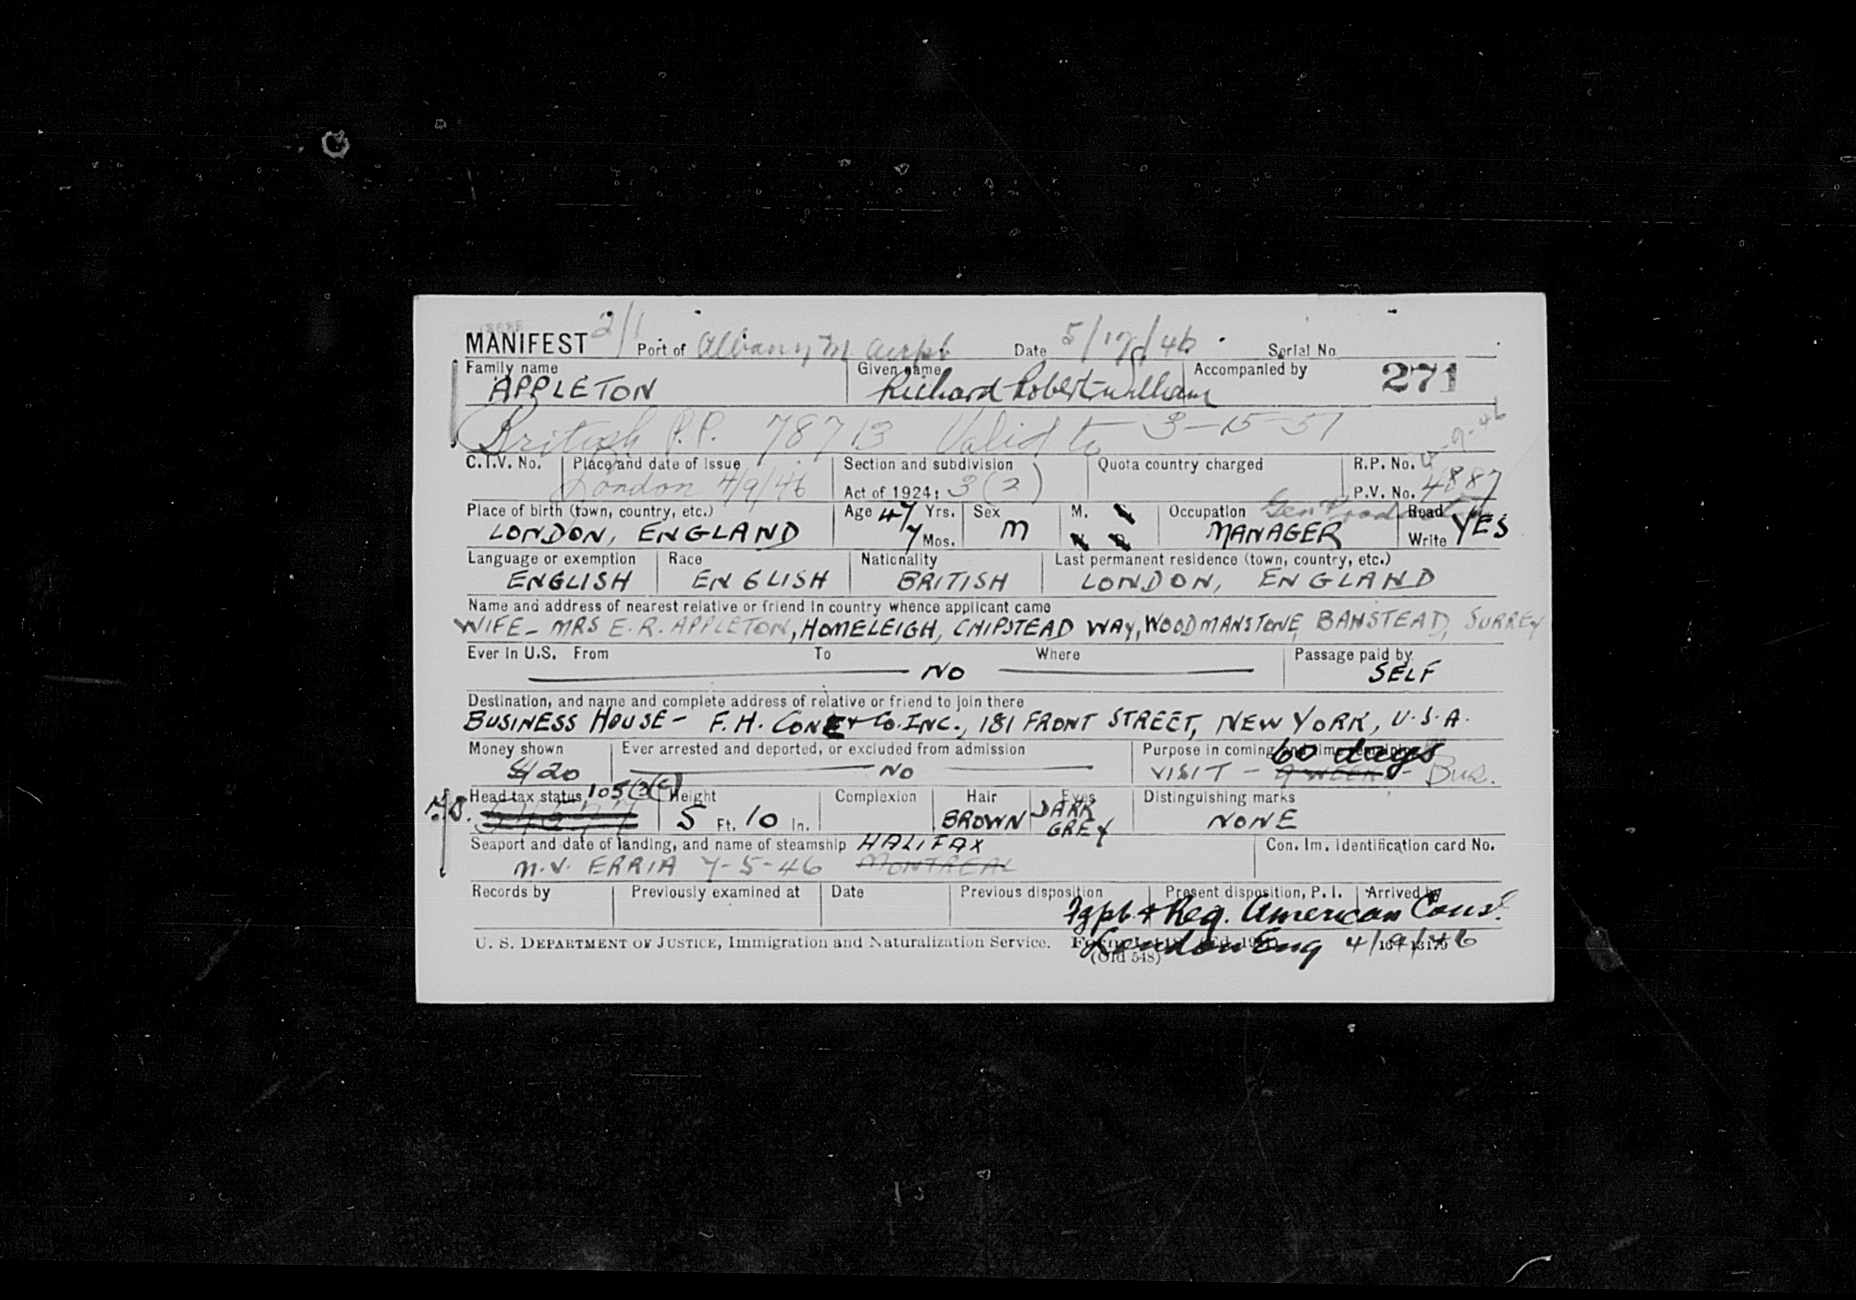 MANIFEST 2/1 Port of Albany Date 5/17/46 Serial No.
Family name Given name Accompanied by 271
APPLETON Richard Robert William
British P.P. 78713 Valid to 3-15-51
C.I.V. No. Place and date of issue Section and subdivision Quota country charged R.P. No. 4-9-46
London 4/9/46 Act of 1924: 3(2) P.V. No. 4887
Place of birth (town, country, etc.) Age 47 Yrs. Sex M. Occupation Read
LONDON, ENGLAND 7 Mos. M MANAGER Write YES
Language or exemption Race Nationality Last permanent residence (town, country, etc.)
ENGLISH ENGLISH BRITISH LONDON, ENGLAND
Name and address of nearest relative or friend in country whence applicant came
WIFE - MRS E.R. APPLETON, HOMELEIGH, CHIPSTEAD WAY, WOODMANSTONE, BANSTEAD, SURREY
Ever in U.S. From To Where Passage paid by
NO SELF
Destination, and name and complete address of relative or friend to join there
BUSINESS HOUSE - F.H. CONE & Co. INC., 181 FRONT STREET, NEW YORK, U.S.A.
Money shown Ever arrested and deported, or excluded from admission Purpose in coming 60 days
420 NO VISIT - 9 WEEKS - Bus.
Head tax status 105(3)(c) Height Complexion Hair Eyes Distinguishing marks
5 Ft. 10 In. BROWN DARK GREY NONE
Seaport and date of landing, and name of steamship HALIFAX Con. Im. identification card No.
M.V. ERRIA 7-5-46 MONTREAL
Records by Previously examined at Date Previous disposition Present disposition, P. I. Arrived by
Fgpt. & Reg. American Cons.
U. S. DEPARTMENT OF JUSTICE, Immigration and Naturalization Service. London Eng 4/9/46
(Old 548)